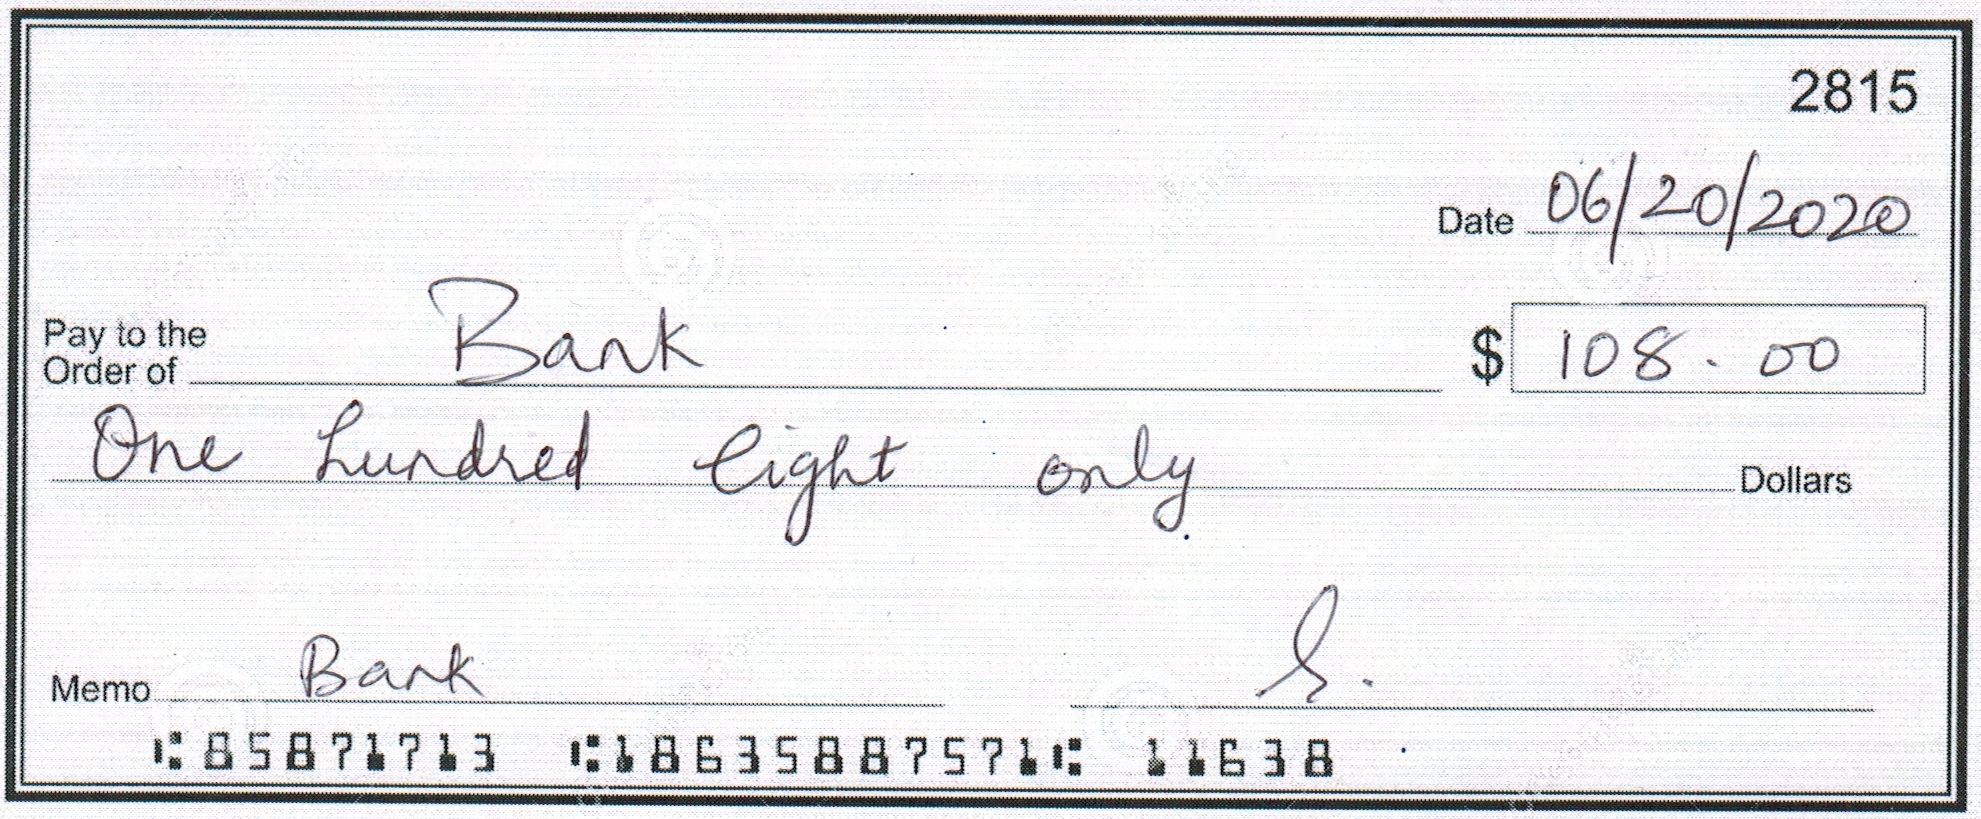 2815
Date 06/20/2020
Pay to the
Order of Bank $ 108.00
One hundred eight only Dollars
Memo Bank S.
⑆85871713 ⑆18635887571⑆ 11638